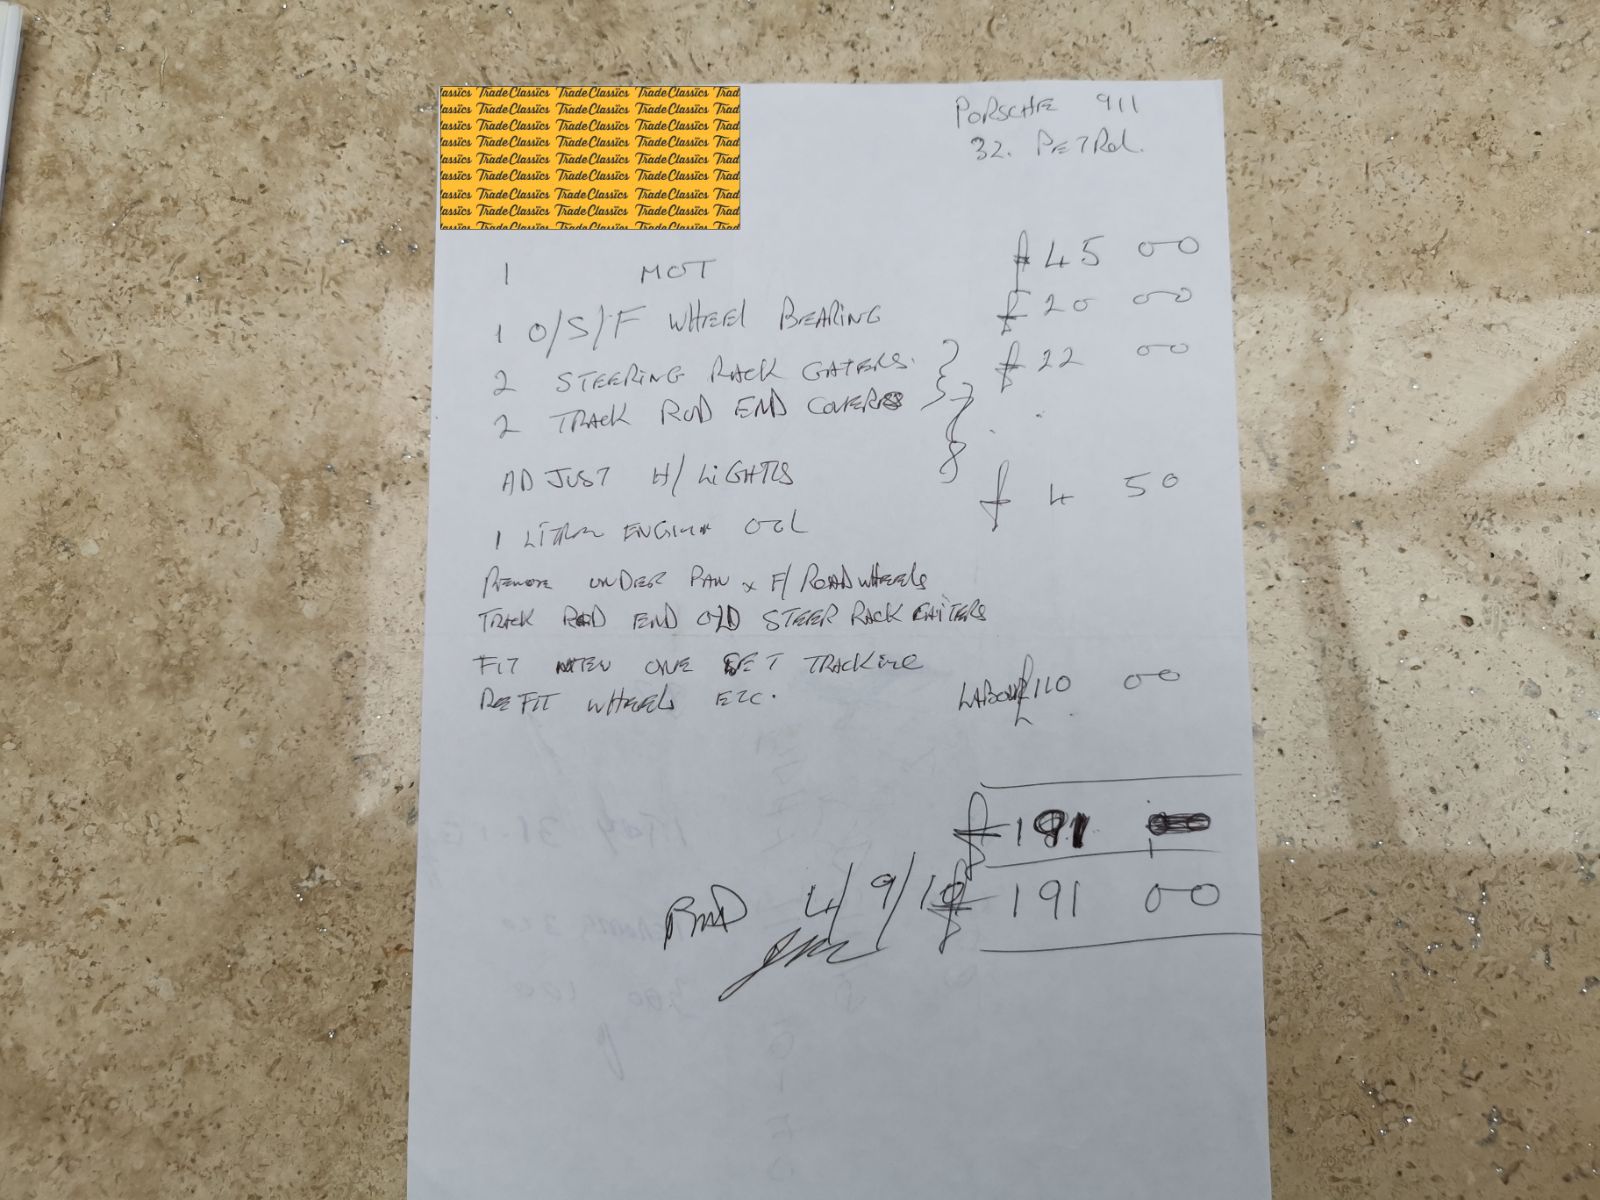 Trade Classics Trade Classics Trade Classics
PORSCHE 911
32. PETROL.
1 MOT £45 00
1 O/S/F WHEEL BEARING £20 00
2 STEERING RACK GATERS. £22 00
2 TRACK ROD END COVERS
ADJUST H/LIGHTS
£4 50
1 LITRE ENGINE OIL
REMOVE UNDER PAN x F/ROADWHEELS
TRACK ROD END OLD STEER RACK GAITERS
FIT NEW ONE SET TRACKING
REFIT WHEELS ETC.
LABOUR £110 00
£191
PAID 4/9/10 £191 00